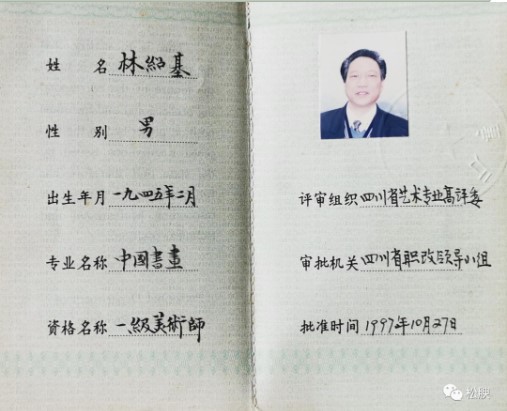 姓 名 林紹基
性 别 男
出生年月 一九四五年二月
专业名称 中國書畫
资格名称 一級美術師
评审组织 四川省艺术专业高评委
审批机关 四川省职改领导小组
批准时间 1997年10月27日